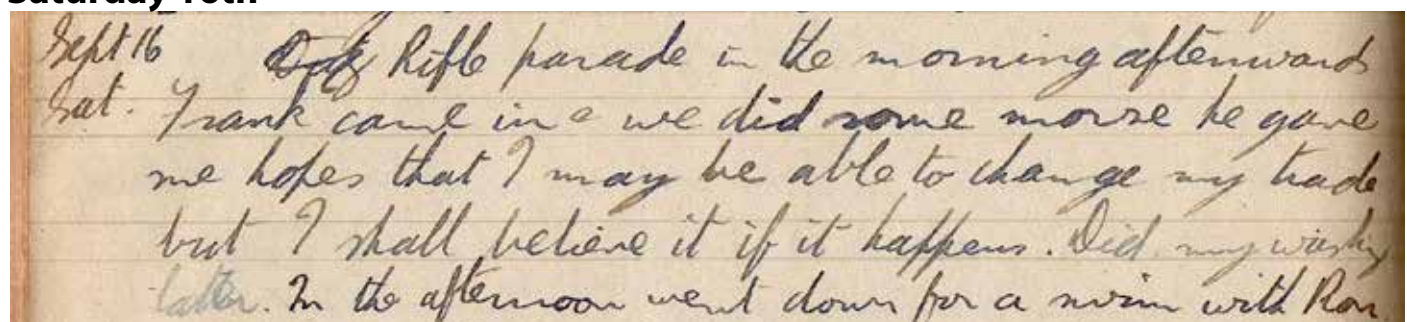 Saturday 16th
Sept 16 Rifle parade in the morning afterwards
Sat. Frank came in & we did some morse he gave
me hopes that I may be able to change my trade
but I shall believe it if it happens. Did my washing
latter. In the afternoon went down for a swim with Ron